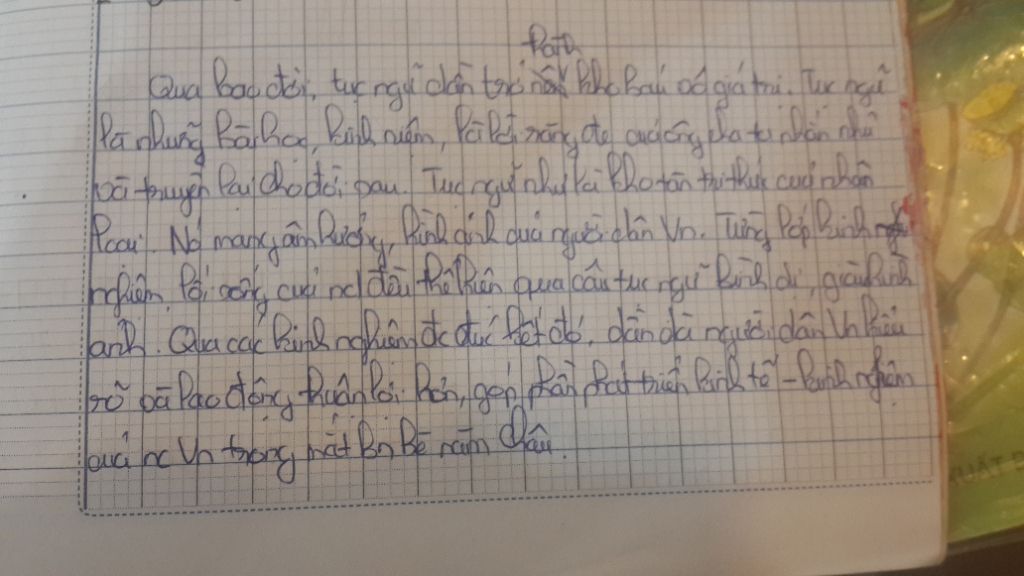 thành
Qua bao đời, tục ngữ dần trở nên kho báu có giá trị. Tục ngữ
là những bài học, kinh nghiệm, là lời răng dạy của ông cha ta nhắn nhủ
và truyền lại cho đời sau. Tục ngữ như là kho tàn tri thức của nhân
loại. Nó mang âm hưởng, hình ảnh của người dân Vn. Từng lớp kinh
nghiệm lối sống của nd đều thể hiện qua câu tục ngữ bình dị, giàu hình
ảnh. Qua các kinh nghiệm đc đúc kết đó, dần dà người dân Vn hiểu
rõ và lao động thuận lợi hơn, góp phần phát triển kinh tế - kinh nghiệm
của nc Vn trong mắt bn bè năm châu.
XUẤT B